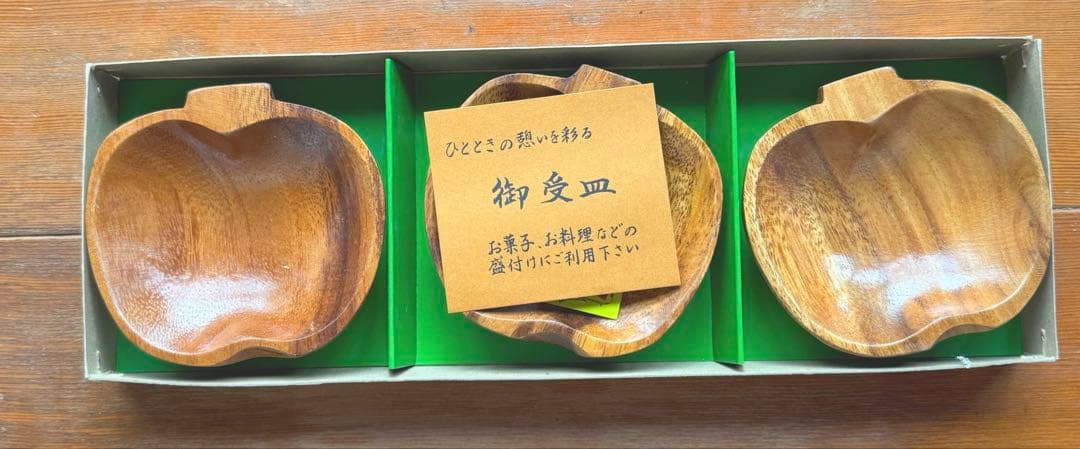 ひとときの憩いを彩る
御受皿
お菓子、お料理などの
盛付けにご利用下さい